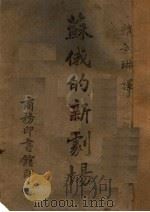 琳譯
蘇俄的新劇場
商務印書館